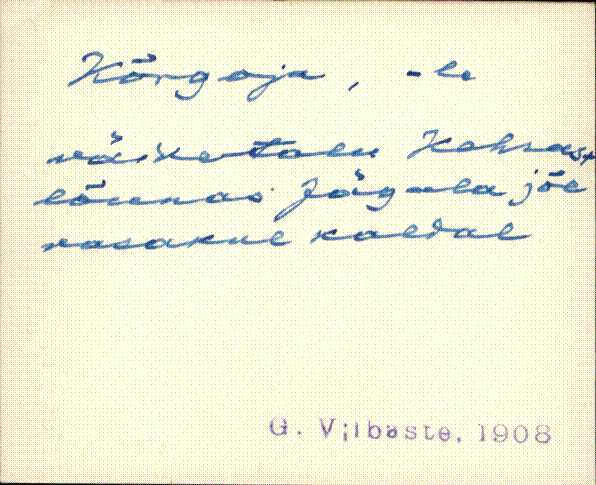 Kõrgoja, -le
väiketalu Kehras,
lõunas Jägala jõe
vasakul kaldal
G. Vilbaste, 1908